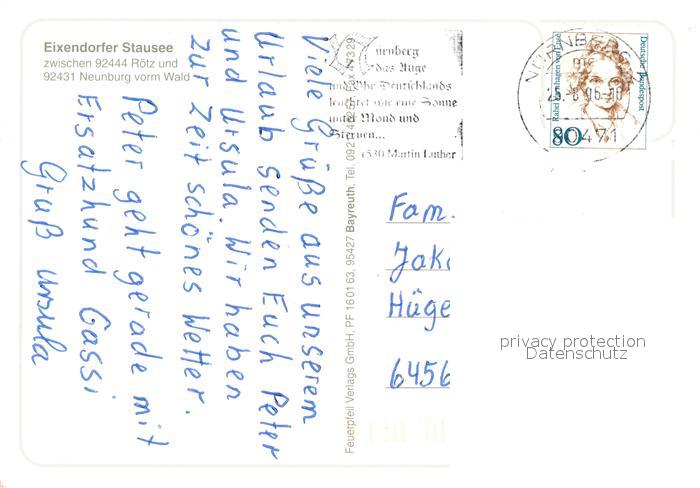 Eixendorfer Stausee
zwischen 92444 Rötz und
92431 Neunburg vorm Wald
Viele Grüße aus unserem
Urlaub senden Euch Peter
und Ursula. Wir haben
zur Zeit schönes Wetter.
Peter geht gerade mit
Ersatzhund Gassi
Gruß Ursula
Feuerpfeil Verlags GmbH, PF 16 01 63, 95427 Bayreuth, Tel. 092
ax 47329
ürnberg
das Auge
und Ohr Deutschlands
leuchtet wie eine Sonne
unter Mond und
Sternen...
1530 Martin Luther
Rahel Varnhagen von Ense
Deutsche Bundespost
80
NÜRNBERG
90471
Fam.
Jak
Hüge
6456
privacy protection
Datenschutz